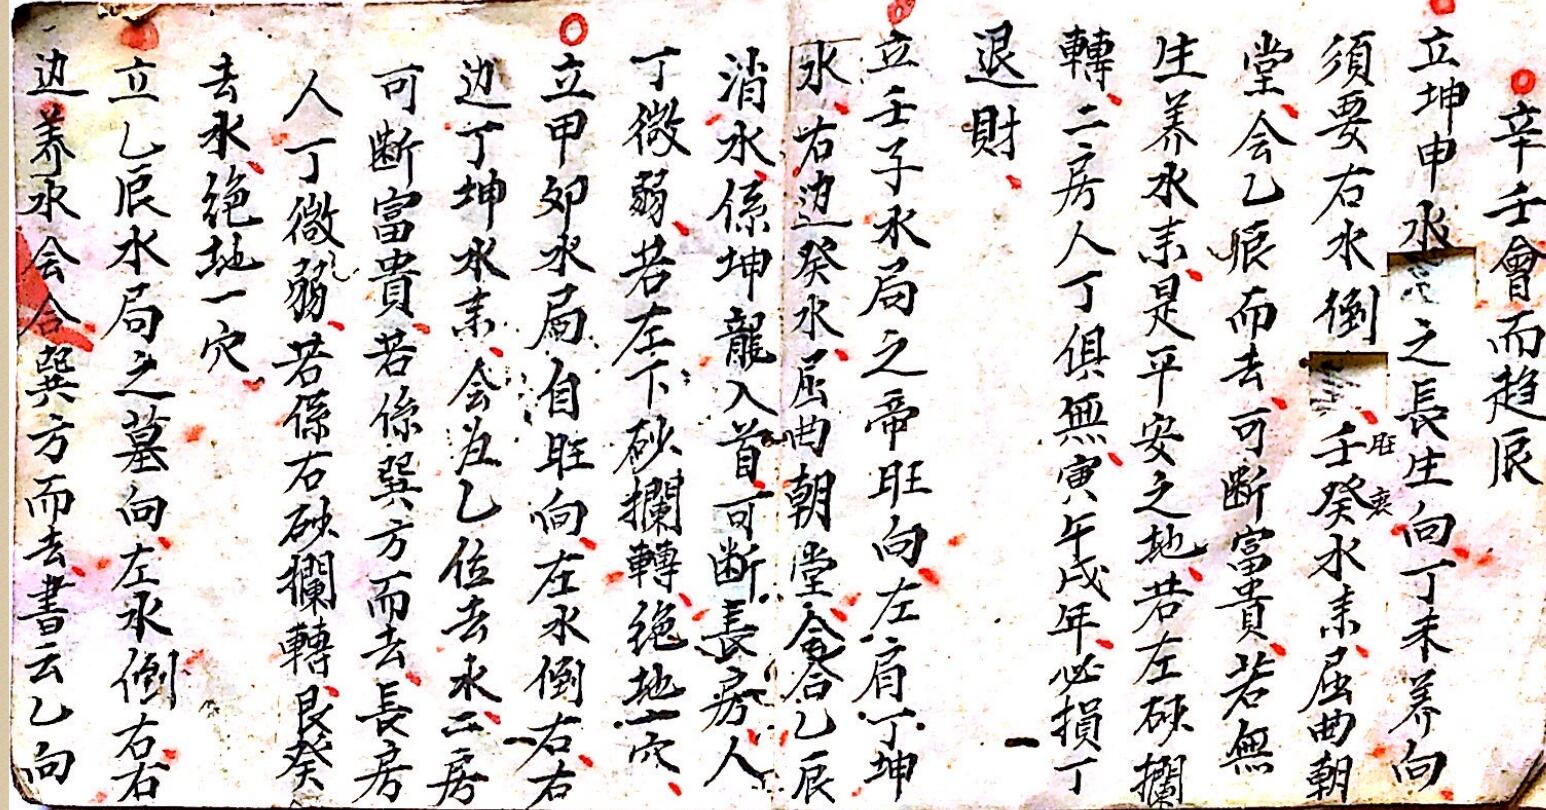 辛壬會而趋辰
立坤申水之長生向丁未养向
須要右水倒壬癸水耒屈曲朝
旺衰
堂会乙辰而去可断富貴若無
生养水耒是平安之地若左砂攔
轉二房人丁俱無寅午戌年必損丁
退財
立壬子水局之帝旺向左肩丁坤
水右边癸水屈曲朝堂会合乙辰
消水係坤龍入首可断長房人
丁微弱若左下砂攔轉绝地一穴
立甲卯水局自旺向左水倒右右
边丁坤水耒会为乙位去水二房
可断富貴若係巽方而去長房
人丁微弱若係右砂攔轉艮癸
去水绝地一穴
立乙辰水局之墓向左水倒右右
边养水会合巽方而去書云乙向